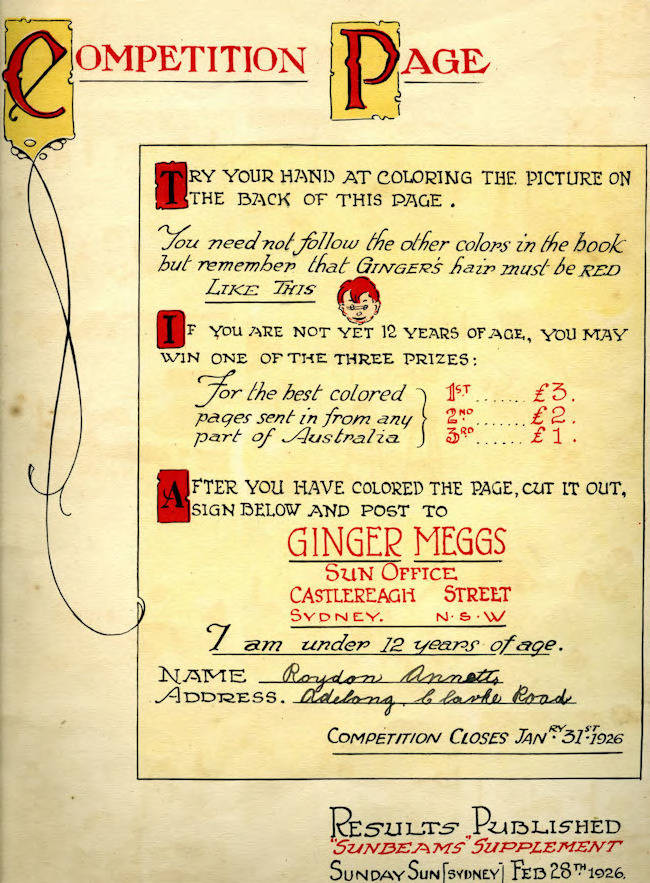 COMPETITION PAGE
TRY YOUR HAND AT COLORING THE PICTURE ON
THE BACK OF THIS PAGE.
You need not follow the other colors in the book
but remember that GINGER'S hair must be RED
LIKE THIS
IF YOU ARE NOT YET 12 YEARS OF AGE, YOU MAY
WIN ONE OF THE THREE PRIZES:
For the best colored
pages sent in from any
part of Australia
1ST ...... £3.
2ND ...... £2.
3RD ...... £1.
AFTER YOU HAVE COLORED THE PAGE, CUT IT OUT,
SIGN BELOW AND POST TO
GINGER MEGGS
SUN OFFICE
CASTLEREAGH STREET
SYDNEY. N.S.W
I am under 12 years of age.
NAME Roydon Annetts
ADDRESS. Adelong, Clarke Road
COMPETITION CLOSES JANRY. 31ST. 1926
RESULTS PUBLISHED
"SUNBEAMS" SUPPLEMENT
SUNDAY SUN [SYDNEY] FEB 28TH. 1926.